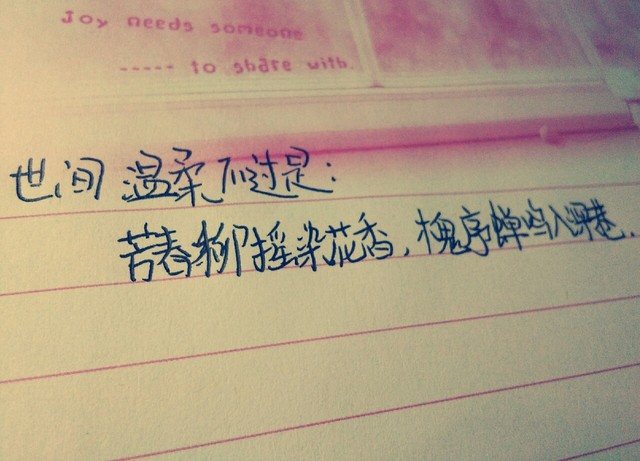 Joy needs someone
----- to share with.
世间温柔不过是:
芳春柳摇染花香,槐序蝉鸣入深巷.